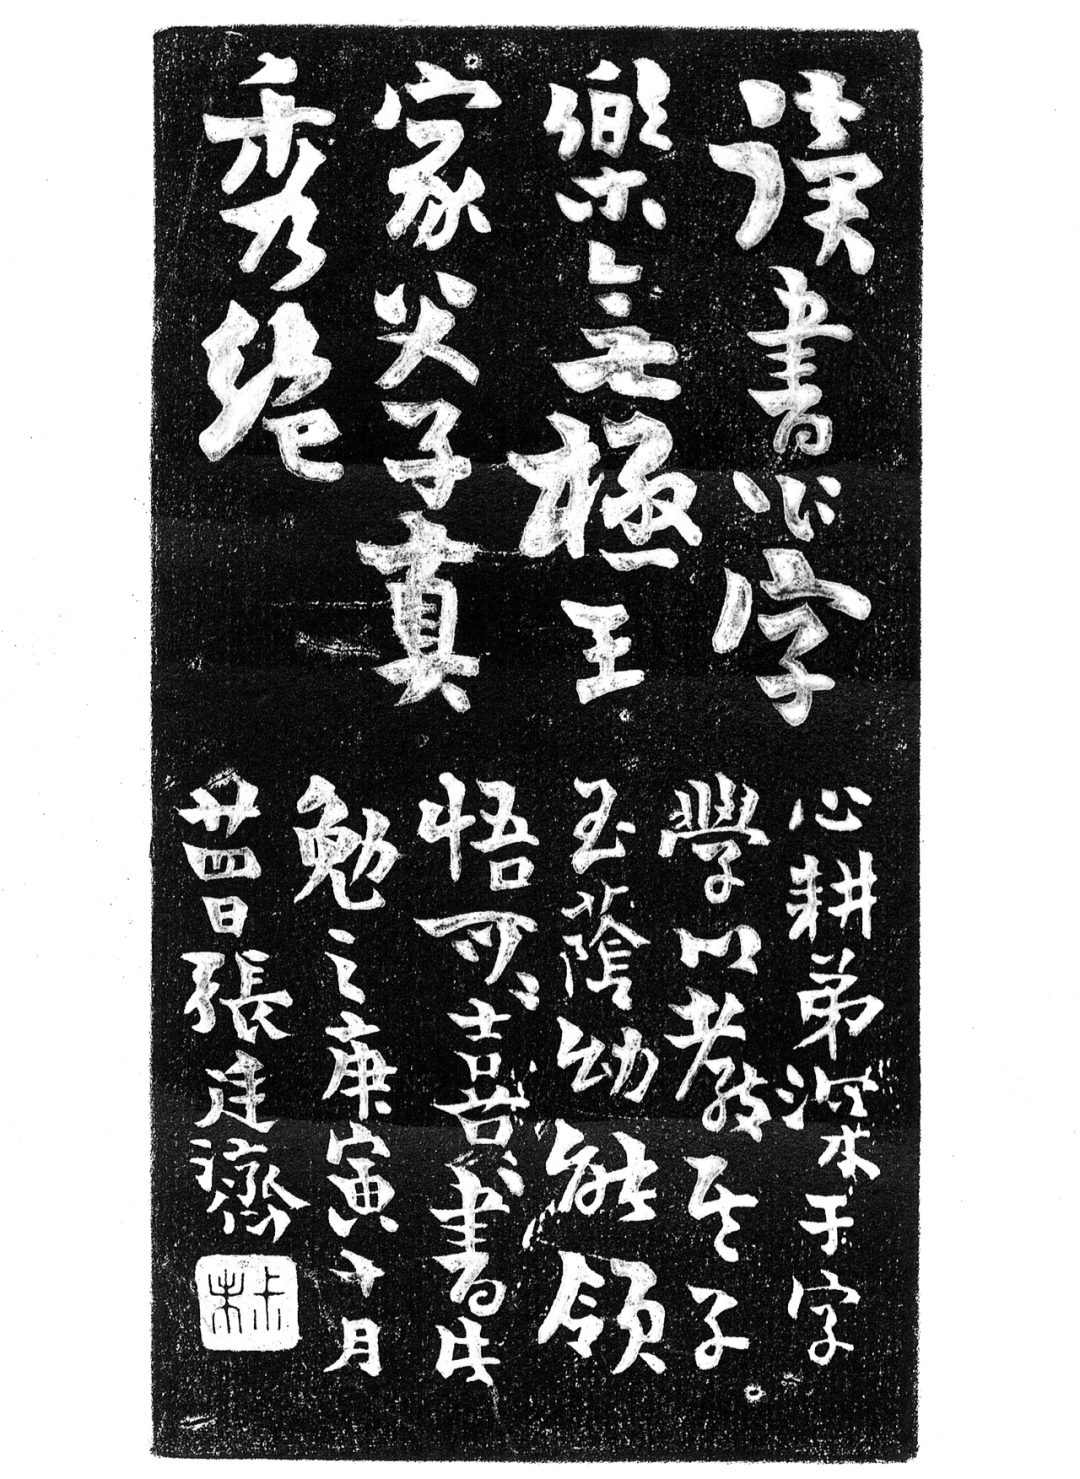 讀書心字
樂無極王
家父子真
秀絕
心耕弟深于字
學以教其子
玉蔭幼能領
悟可喜書此
勉之庚寅十月
廿四日張廷濟
尗未